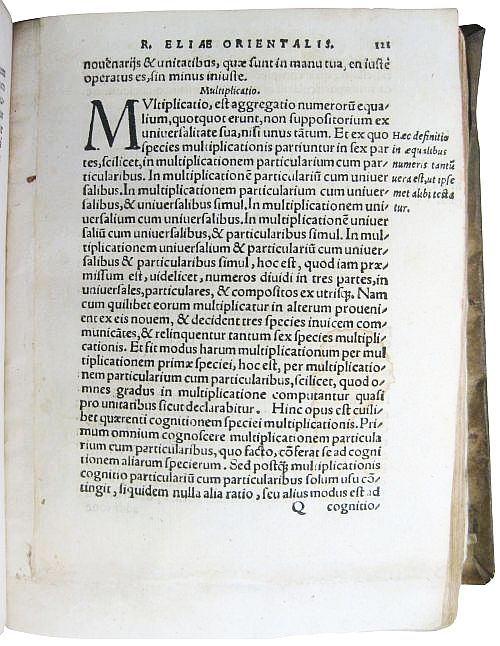 R. ELIAE ORIENTALIS. 121
nouenarijs & unitatibus, quæ sunt in manu tua, en iustè
operatus es, sin minus iniuste.
Multiplicatio.
MVltiplicatio, est aggregatio numerorũ equa-
lium, quotquot erunt, non suppositorium ex
uniuersalitate sua, nisi unus tãtum. Et ex quo
species multiplicationis partiuntur in sex par
tes, scilicet, in multiplicationem particularium cum par-
ticularibus. In multiplicationẽ particulariũ cum uniuer-
salibus. In multiplicationem particularium cum uniuer-
salibus, & uniuersalibus simul. In multiplicationem uni-
uersalium cum uniuersalibus. In multiplicationẽ uniuer
saliũ cum uniuersalibus, & particularibus simul. In mul-
tiplicationem uniuersalium & particulariũ cum uniuer-
salibus & particularibus simul, hoc est, quod iam præ-
missum est, uidelicet, numeros diuidi in tres partes, in
uniuersales, particulares, & compositos ex utrisq;. Nam
cum quilibet eorum multiplicatur in alterum proueni-
ent ex eis nouem, & decident tres species inuicem com-
municãtes, & relinquuntur tantum sex species multipli-
cationis. Et fit modus harum multiplicationum per mul
tiplicationem primæ speciei, hoc est, per multiplicatio-
nem particularium cum particularibus, scilicet, quod o-
mnes gradus in multiplicatione computantur quasi
pro unitatibus sicut declarabitur. Hinc opus est cuili-
bet quærenti cognitionem speciei multiplicationis. Pri-
mum omnium cognoscere multiplicationem particula
rium cum particularibus, quo facto, cõferat se ad cogni
tionem aliarum specierum. Sed postq̃ multiplicationis
cognitio particulariũ cum particularibus solum usu cõ-
tingit, siquidem nulla alia ratio, seu alius modus est ad
Q cognitio-
Hæc definitio
in æqualibus
numeris tantũ
uera est, ut ipse
met alibi testa
tur.